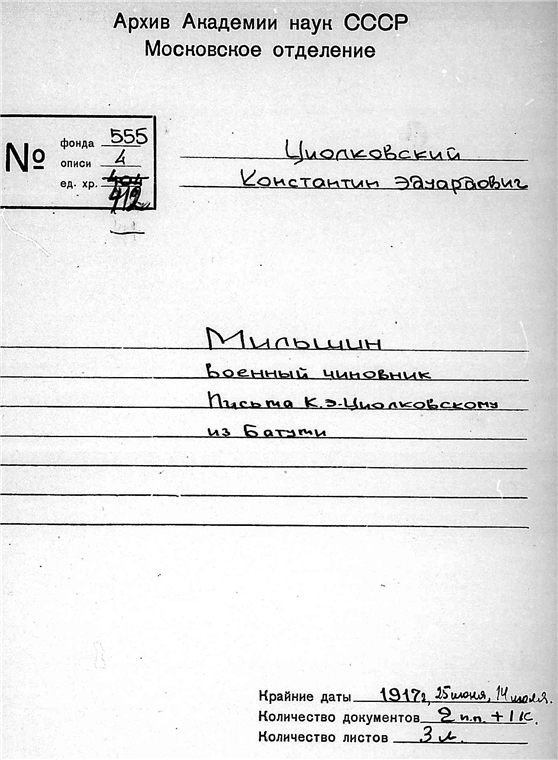 Архив Академии наук СССР
Московское отделение
№
фонда 555
описи 4
ед. хр. 404
412
Циолковский
Константин Эдуардович
Мильшин
Военный чиновник
Письма К.Э.Циолковскому
из Батуми
Крайние даты 1917г, 25 июня, 14 июля.
Количество документов 2 п.п. + 1 к.
Количество листов 3 л.